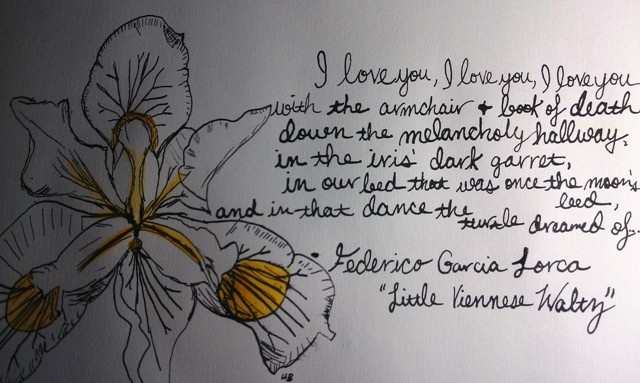 I love you, I love you, I love you
with the armchair & book of death
down the melancholy hallway,
in the iris' dark garret,
in our bed that was once the moon's bed,
and in that dance the turtle dreamed of.
• Federico Garcia Lorca
"Little Viennese Waltz"
HB